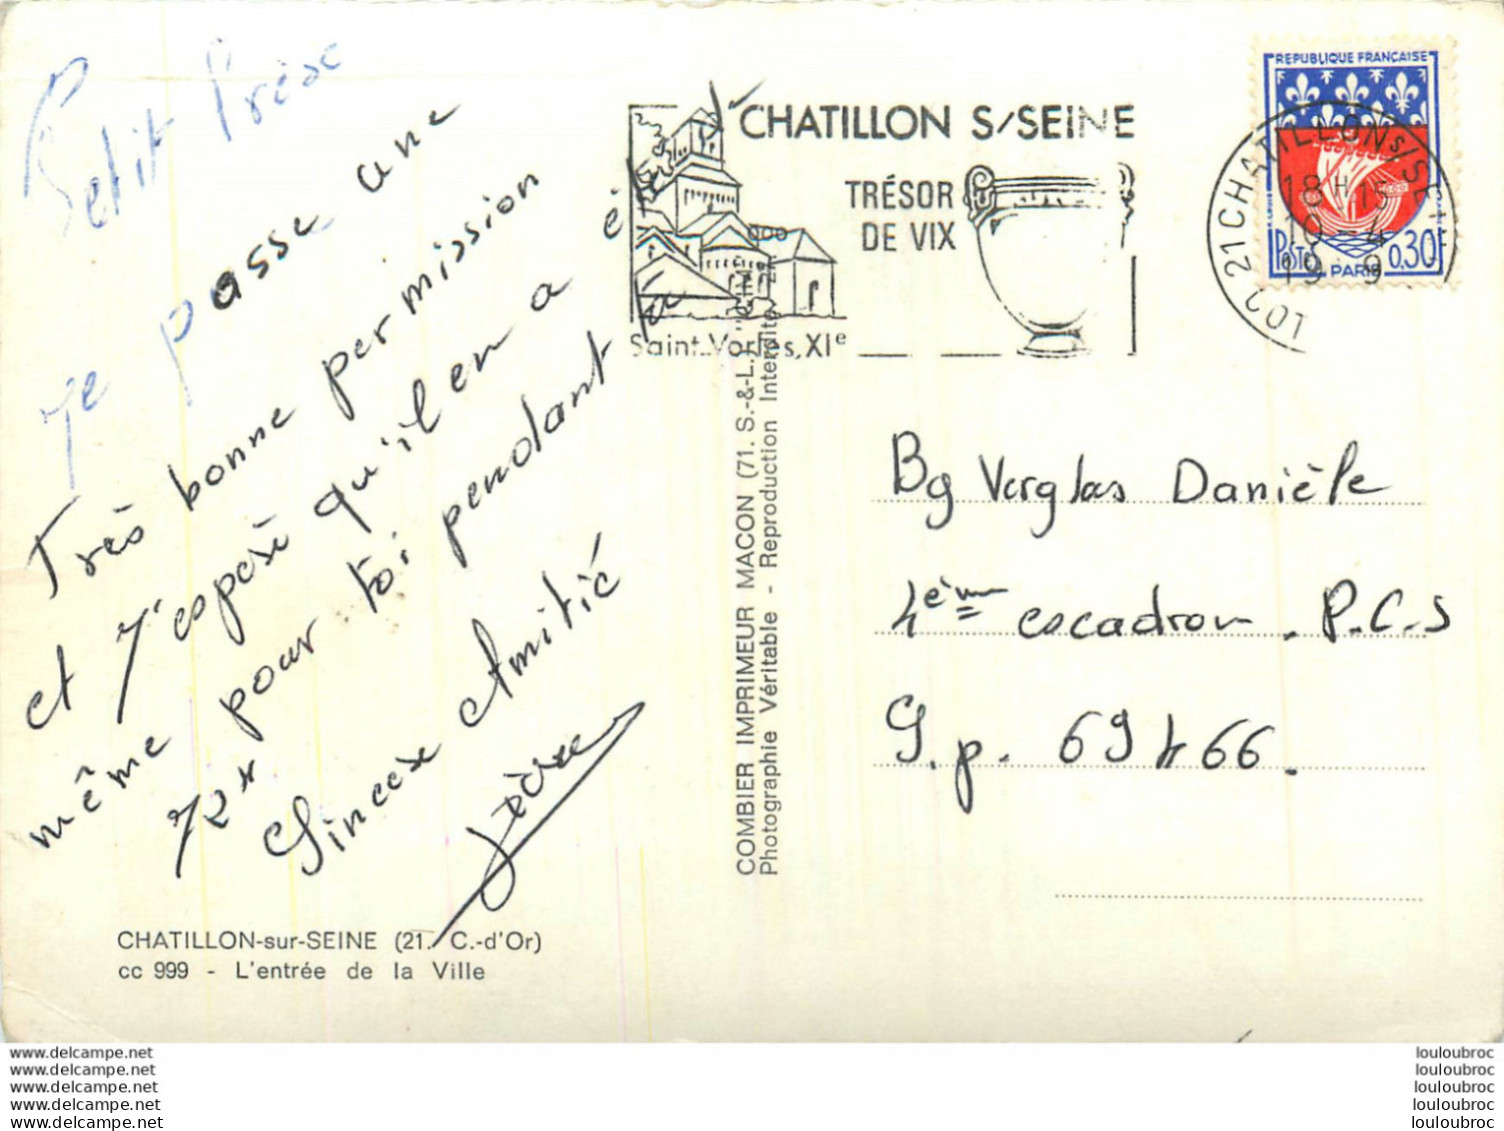 Petit
Je passe une
Très bonne permission
et J'espère qu'il en a
été de
même pour toi pendant la
72H
Sincère Amitié
CHATILLON-sur-SEINE (21. C.-d'Or)
cc 999 - L'entrée de la Ville
COMBIER IMPRIMEUR MACON (71. S.-&-L.) "CIM"
Photographie Véritable - Reproduction Interdite
CHATILLON S/SEINE
TRÉSOR
DE VIX
Saint-Vorles, XIe
REPUBLIQUE FRANÇAISE
POSTES
PARIS
0,30F
21 CHATILLON S/SEINE
18H15
Bg Verglas Danièle
4ème escadron. P.C.S
S.p. 69466.
www.delcampe.net
www.delcampe.net
www.delcampe.net
www.delcampe.net
www.delcampe.net
louloubroc
louloubroc
louloubroc
louloubroc
louloubroc